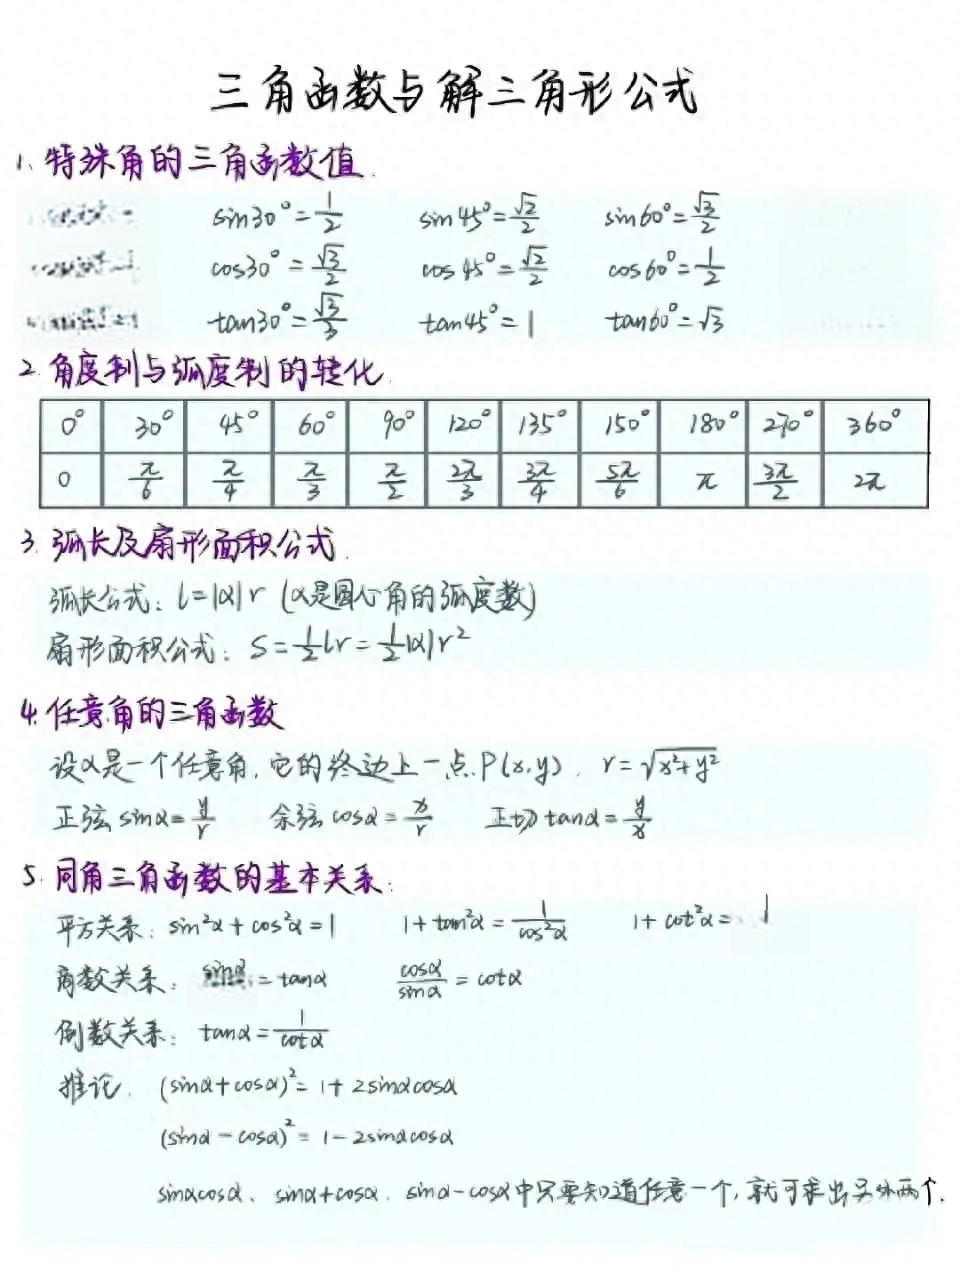 三角函数与解三角形公式
1. 特殊角的三角函数值.
sin30°=1/2 sin45°=√2/2 sin60°=√3/2
cos30°=√3/2 cos45°=√2/2 cos60°=1/2
tan30°=√3/3 tan45°=1 tan60°=√3
2. 角度制与弧度制的转化.
0° 30° 45° 60° 90° 120° 135° 150° 180° 270° 360°
0 π/6 π/4 π/3 π/2 2π/3 3π/4 5π/6 π 3π/2 2π
3. 弧长及扇形面积公式.
弧长公式: l=|α|r (α是圆心角的弧度数)
扇形面积公式: S=1/2lr=1/2|α|r²
4. 任意角的三角函数
设α是一个任意角,它的终边上一点P(x,y), r=√(x²+y²)
正弦sinα=y/r 余弦cosα=x/r 正切tanα=y/x
5. 同角三角函数的基本关系:
平方关系: sin²α+cos²α=1 1+tan²α=1/cos²α 1+cot²α=
商数关系: sinα =tanα cosα/sinα=cotα
倒数关系: tanα=1/cotα
推论. (sinα+cosα)²=1+2sinαcosα
(sinα-cosα)²=1-2sinαcosα
sinαcosα、sinα+cosα、sinα-cosα中只要知道任意一个,就可求出另外两个.